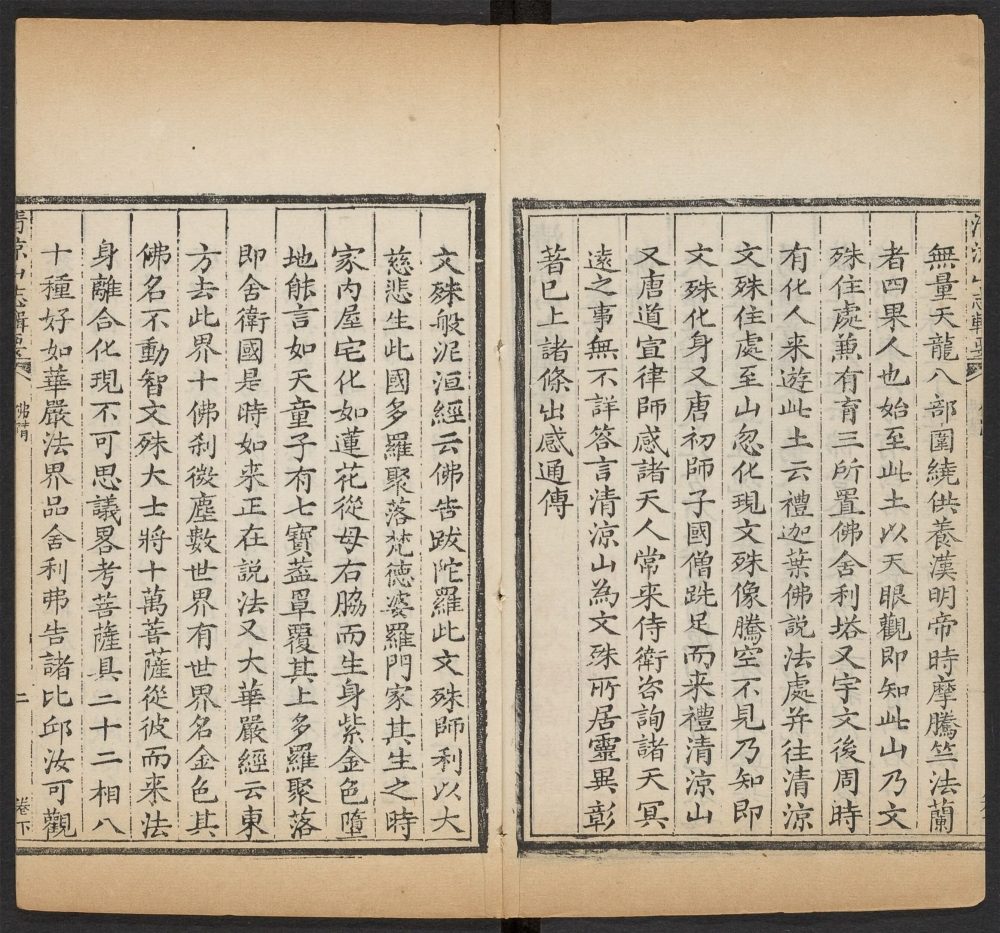 無量天龍八部圍繞供養漢明帝時摩騰竺法蘭
者四果人也始至此土以天眼觀即知此山乃文
殊住處兼有育三所置佛舍利塔又宇文後周時
有化人来遊此土云禮迦葉佛説法處并往清凉
文殊住處至山忽化現文殊像騰空不見乃知即
文殊化身又唐初師子國僧跣足而来禮清凉山
又唐道宣律師感諸天人常来侍衛咨詢諸天冥
逺之事無不詳答言清凉山為文殊所居靈異彰
著已上諸條出感通傳
文殊般泥洹經云佛告跋陀羅此文殊師利以大
慈悲生此國多羅聚落梵德婆羅門家其生之時
家内屋宅化如蓮花從母右脇而生身紫金色墮
地能言如天童子有七寶葢罩覆其上多羅聚落
即舍衛國是時如来正在説法又大華嚴經云東
方去此界十佛刹微塵數世界有世界名金色其
佛名不動智文殊大士將十萬菩薩從彼而来法
身離合化現不可思議畧考菩薩具二十二相八
十種好如華嚴法界品舍利弗告諸比邱汝可觀
清凉山志輯要 二 卷下